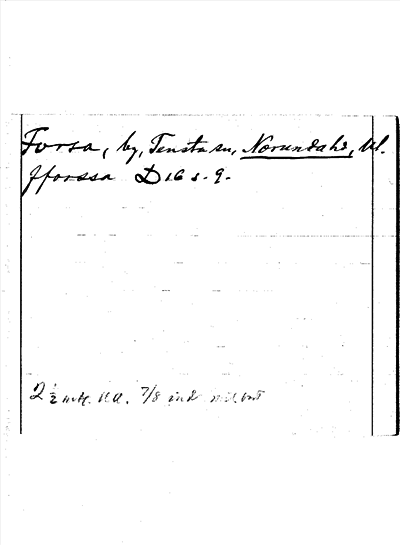 Forsa, by, Tensta sn, Norunda hd, Upl.
fforssa D 16 s. 9.
2 1/2 mtl. 7/8